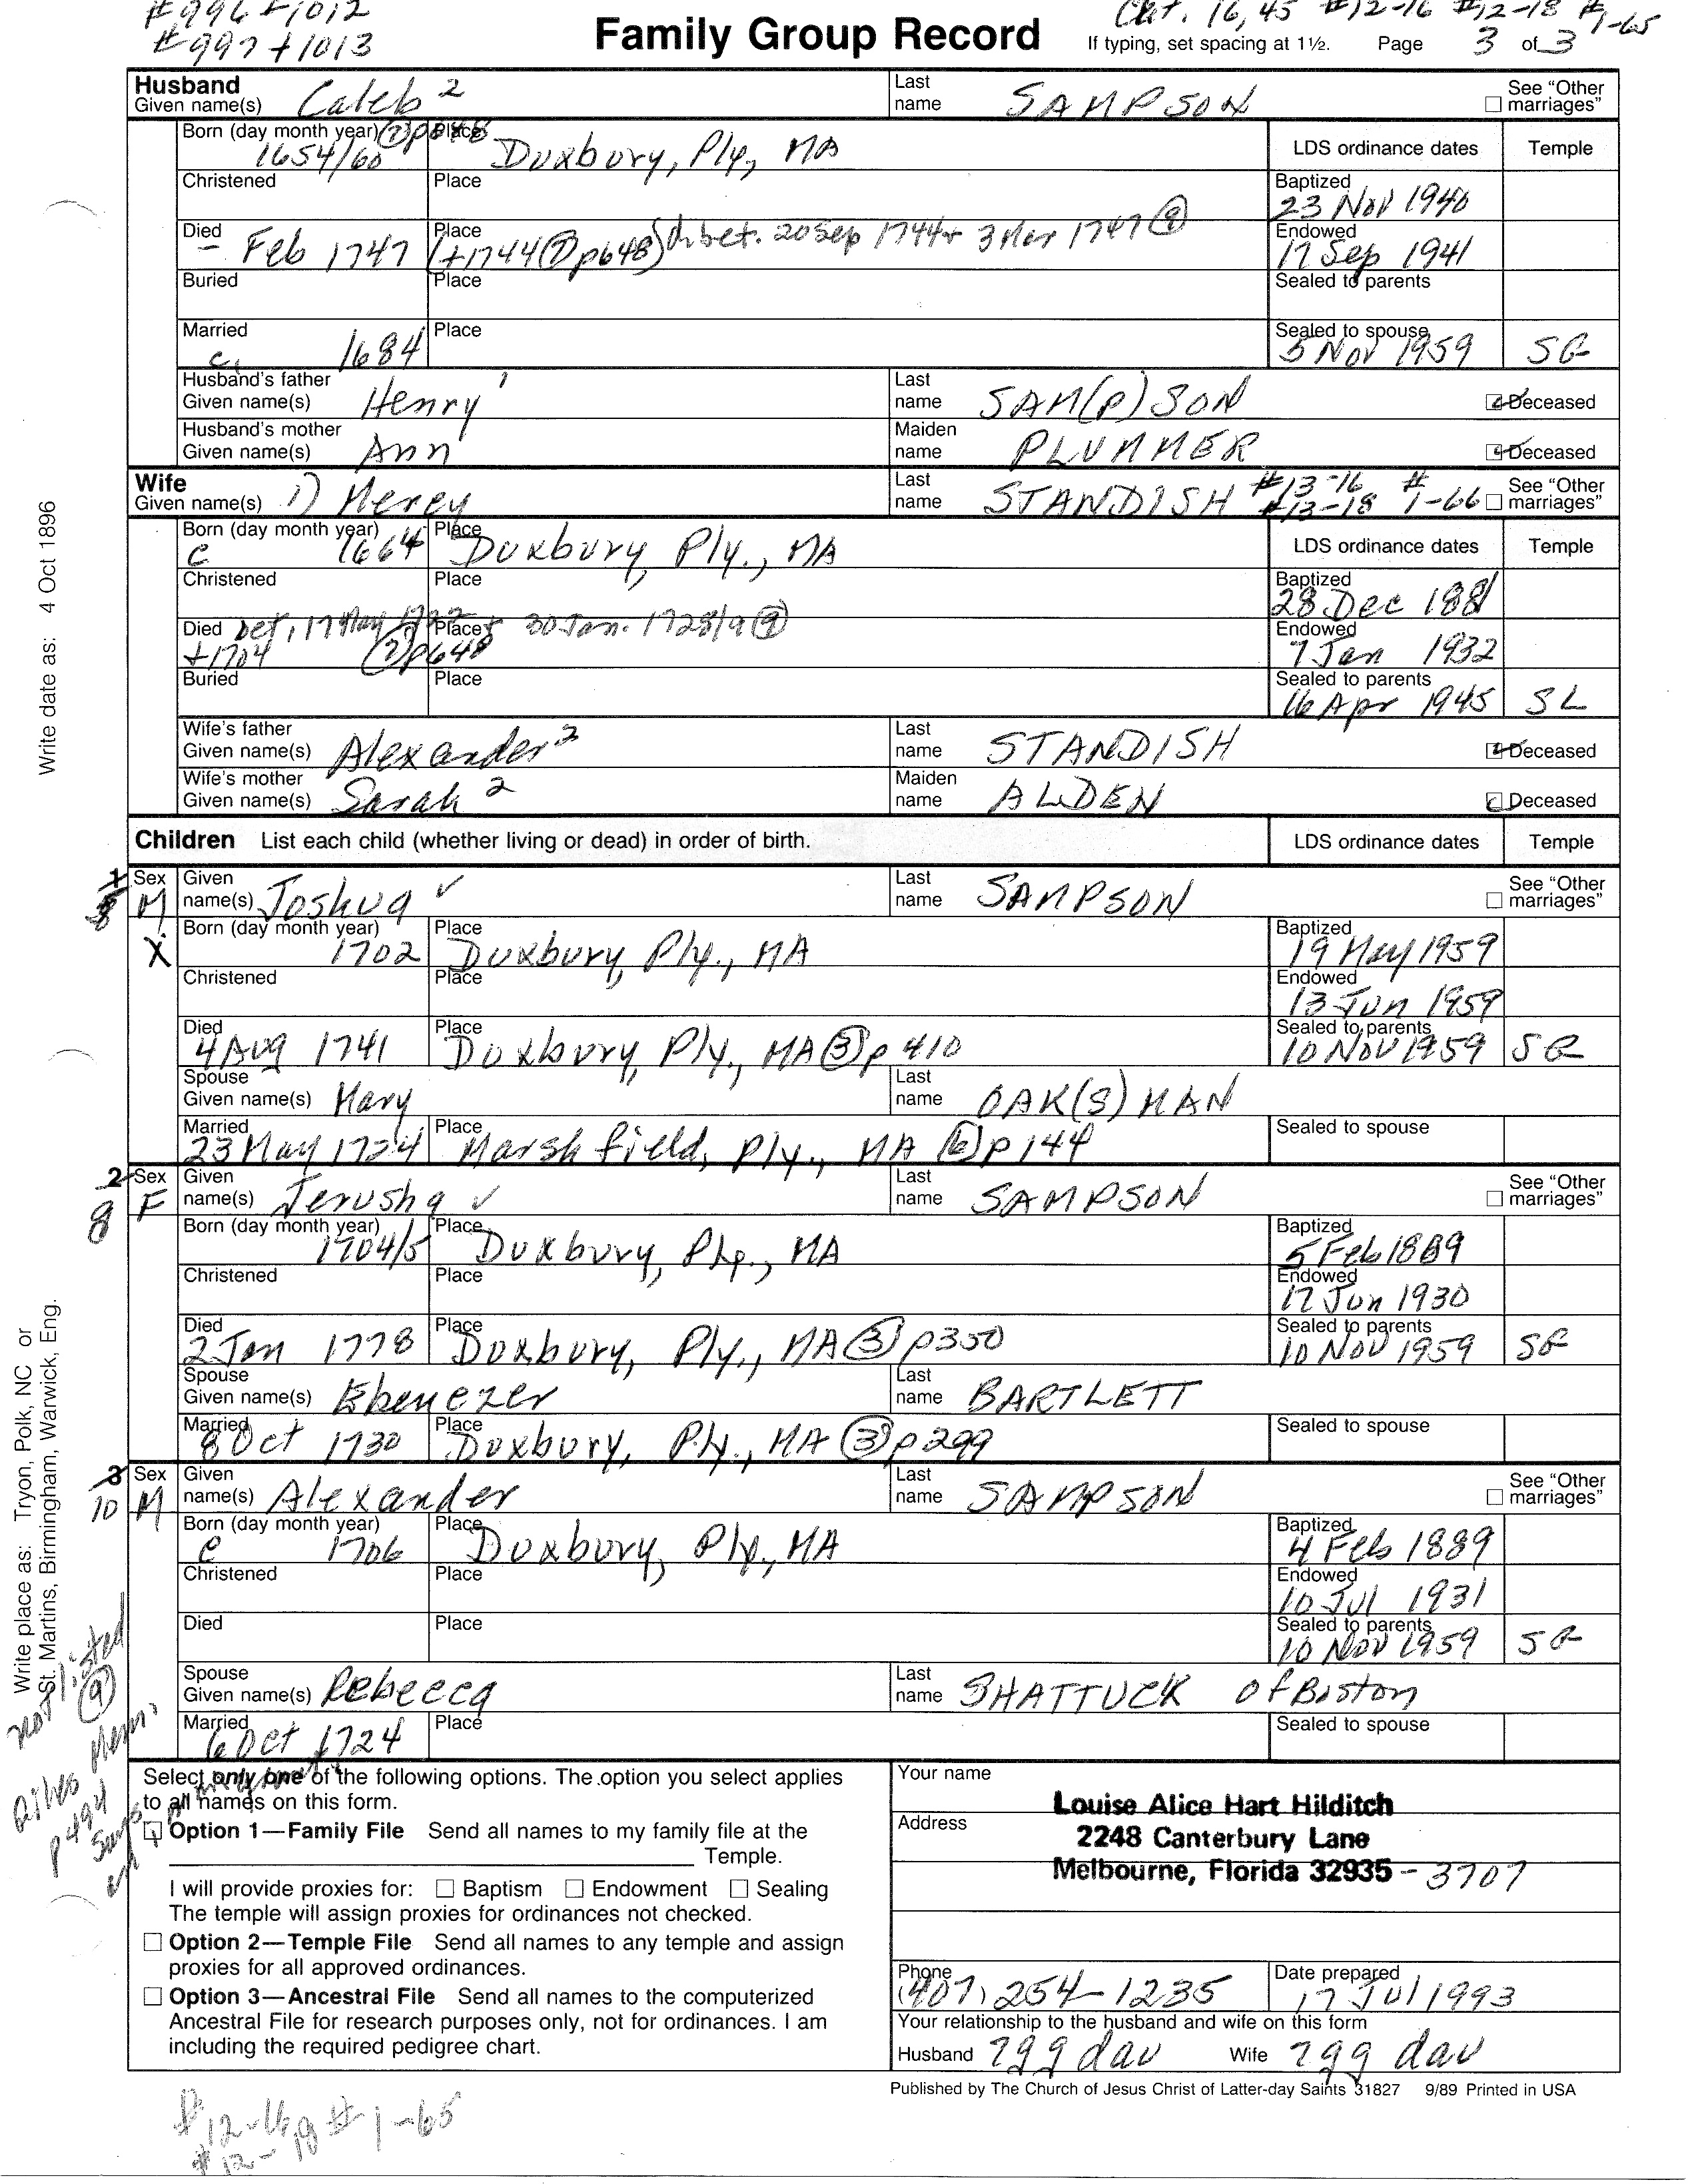 #996+1012
#997+1013
Family Group Record
If typing, set spacing at 1½.
Page 3 of 3
16, 45 #12-16 #12-18 #1-65
Husband
Given name(s) Caleb 2
Last name SAMPSON
See "Other marriages"
Born (day month year) 1654/60
Place Duxbury, Ply, MA
LDS ordinance dates
Temple
Christened
Place
Baptized 23 Nov 1940
Died - Feb 1747
Place (+1744 (7) p648) bet. 20 Sep 1744+ 3 Mar 1747 (9)
Endowed 17 Sep 1941
Buried
Place
Sealed to parents
Married c. 1684
Place
Sealed to spouse 5 Nov 1959 SG
Husband's father
Given name(s) Henry 1
Last name SAM(P)SON
Deceased
Husband's mother
Given name(s) Ann
Maiden name PLUMMER
Deceased
Wife
Given name(s) 1) Mercy
Last name STANDISH #13-16 #13-18 #1-66
See "Other marriages"
Born (day month year) c 1664
Place Duxbury, Ply., MA
LDS ordinance dates
Temple
Christened
Place
Baptized 28 Dec 1881
Died bet, 17 May
+1704 (7) p648
Place 30 Jan. 1728/9 (9)
Endowed 7 Jan 1932
Buried
Place
Sealed to parents 16 Apr 1945 SL
Wife's father
Given name(s) Alexander 2
Last name STANDISH
Deceased
Wife's mother
Given name(s) Sarah 2
Maiden name ALDEN
Deceased
Children List each child (whether living or dead) in order of birth.
LDS ordinance dates
Temple
Sex M
X
Given name(s) Joshua ✓
Last name SAMPSON
See "Other marriages"
Born (day month year) 1702
Place Duxbury, Ply., MA
Baptized 19 May 1959
Christened
Place
Endowed 13 Jun 1959
Died 4 Aug 1741
Place Duxbury, Ply., MA (3) p 410
Sealed to parents 10 Nov 1959 SG
Spouse
Given name(s) Mary
Last name OAK(S)MAN
Married 23 May 1724
Place Marshfield, Ply., MA p 144
Sealed to spouse
2
8
Sex F
Given name(s) Jerusha ✓
Last name SAMPSON
See "Other marriages"
Born (day month year) 1704/5
Place Duxbury, Ply., MA
Baptized 5 Feb 1889
Christened
Place
Endowed 17 Jun 1930
Died 2 Jan 1778
Place Duxbury, Ply., MA (3) p350
Sealed to parents 10 Nov 1959 SG
Spouse
Given name(s) Ebenezer
Last name BARTLETT
Married 8 Oct 1730
Place Duxbury, Ply., MA (3) p 299
Sealed to spouse
3
10
Sex M
Given name(s) Alexander
Last name SAMPSON
See "Other marriages"
Born (day month year) c 1706
Place Duxbury, Ply., MA
Baptized 4 Feb 1889
Christened
Place
Endowed 10 Jul 1931
Died
Place
Sealed to parents 10 Nov 1959 SG
Spouse
Given name(s) Rebecca
Last name SHATTUCK of Boston
Married 6 Oct 1724
Place
Sealed to spouse
Select only one of the following options. The option you select applies
to all names on this form.
Option 1—Family File Send all names to my family file at the
Temple.
I will provide proxies for: Baptism Endowment Sealing
The temple will assign proxies for ordinances not checked.
Option 2—Temple File Send all names to any temple and assign
proxies for all approved ordinances.
Option 3—Ancestral File Send all names to the computerized
Ancestral File for research purposes only, not for ordinances. I am
including the required pedigree chart.
Your name
Louise Alice Hart Hilditch
Address
2248 Canterbury Lane
Melbourne, Florida 32935-3707
Phone (407) 254-1235
Date prepared 17 Jul 1993
Your relationship to the husband and wife on this form
Husband 7gg dau
Wife 7gg dau
Published by The Church of Jesus Christ of Latter-day Saints 31827 9/89 Printed in USA
Write date as: 4 Oct 1896
Write place as: Tryon, Polk, NC or
St. Martins, Birmingham, Warwick, Eng.
not listed
(9)
p 494
#12-16 #1-65
#12-18